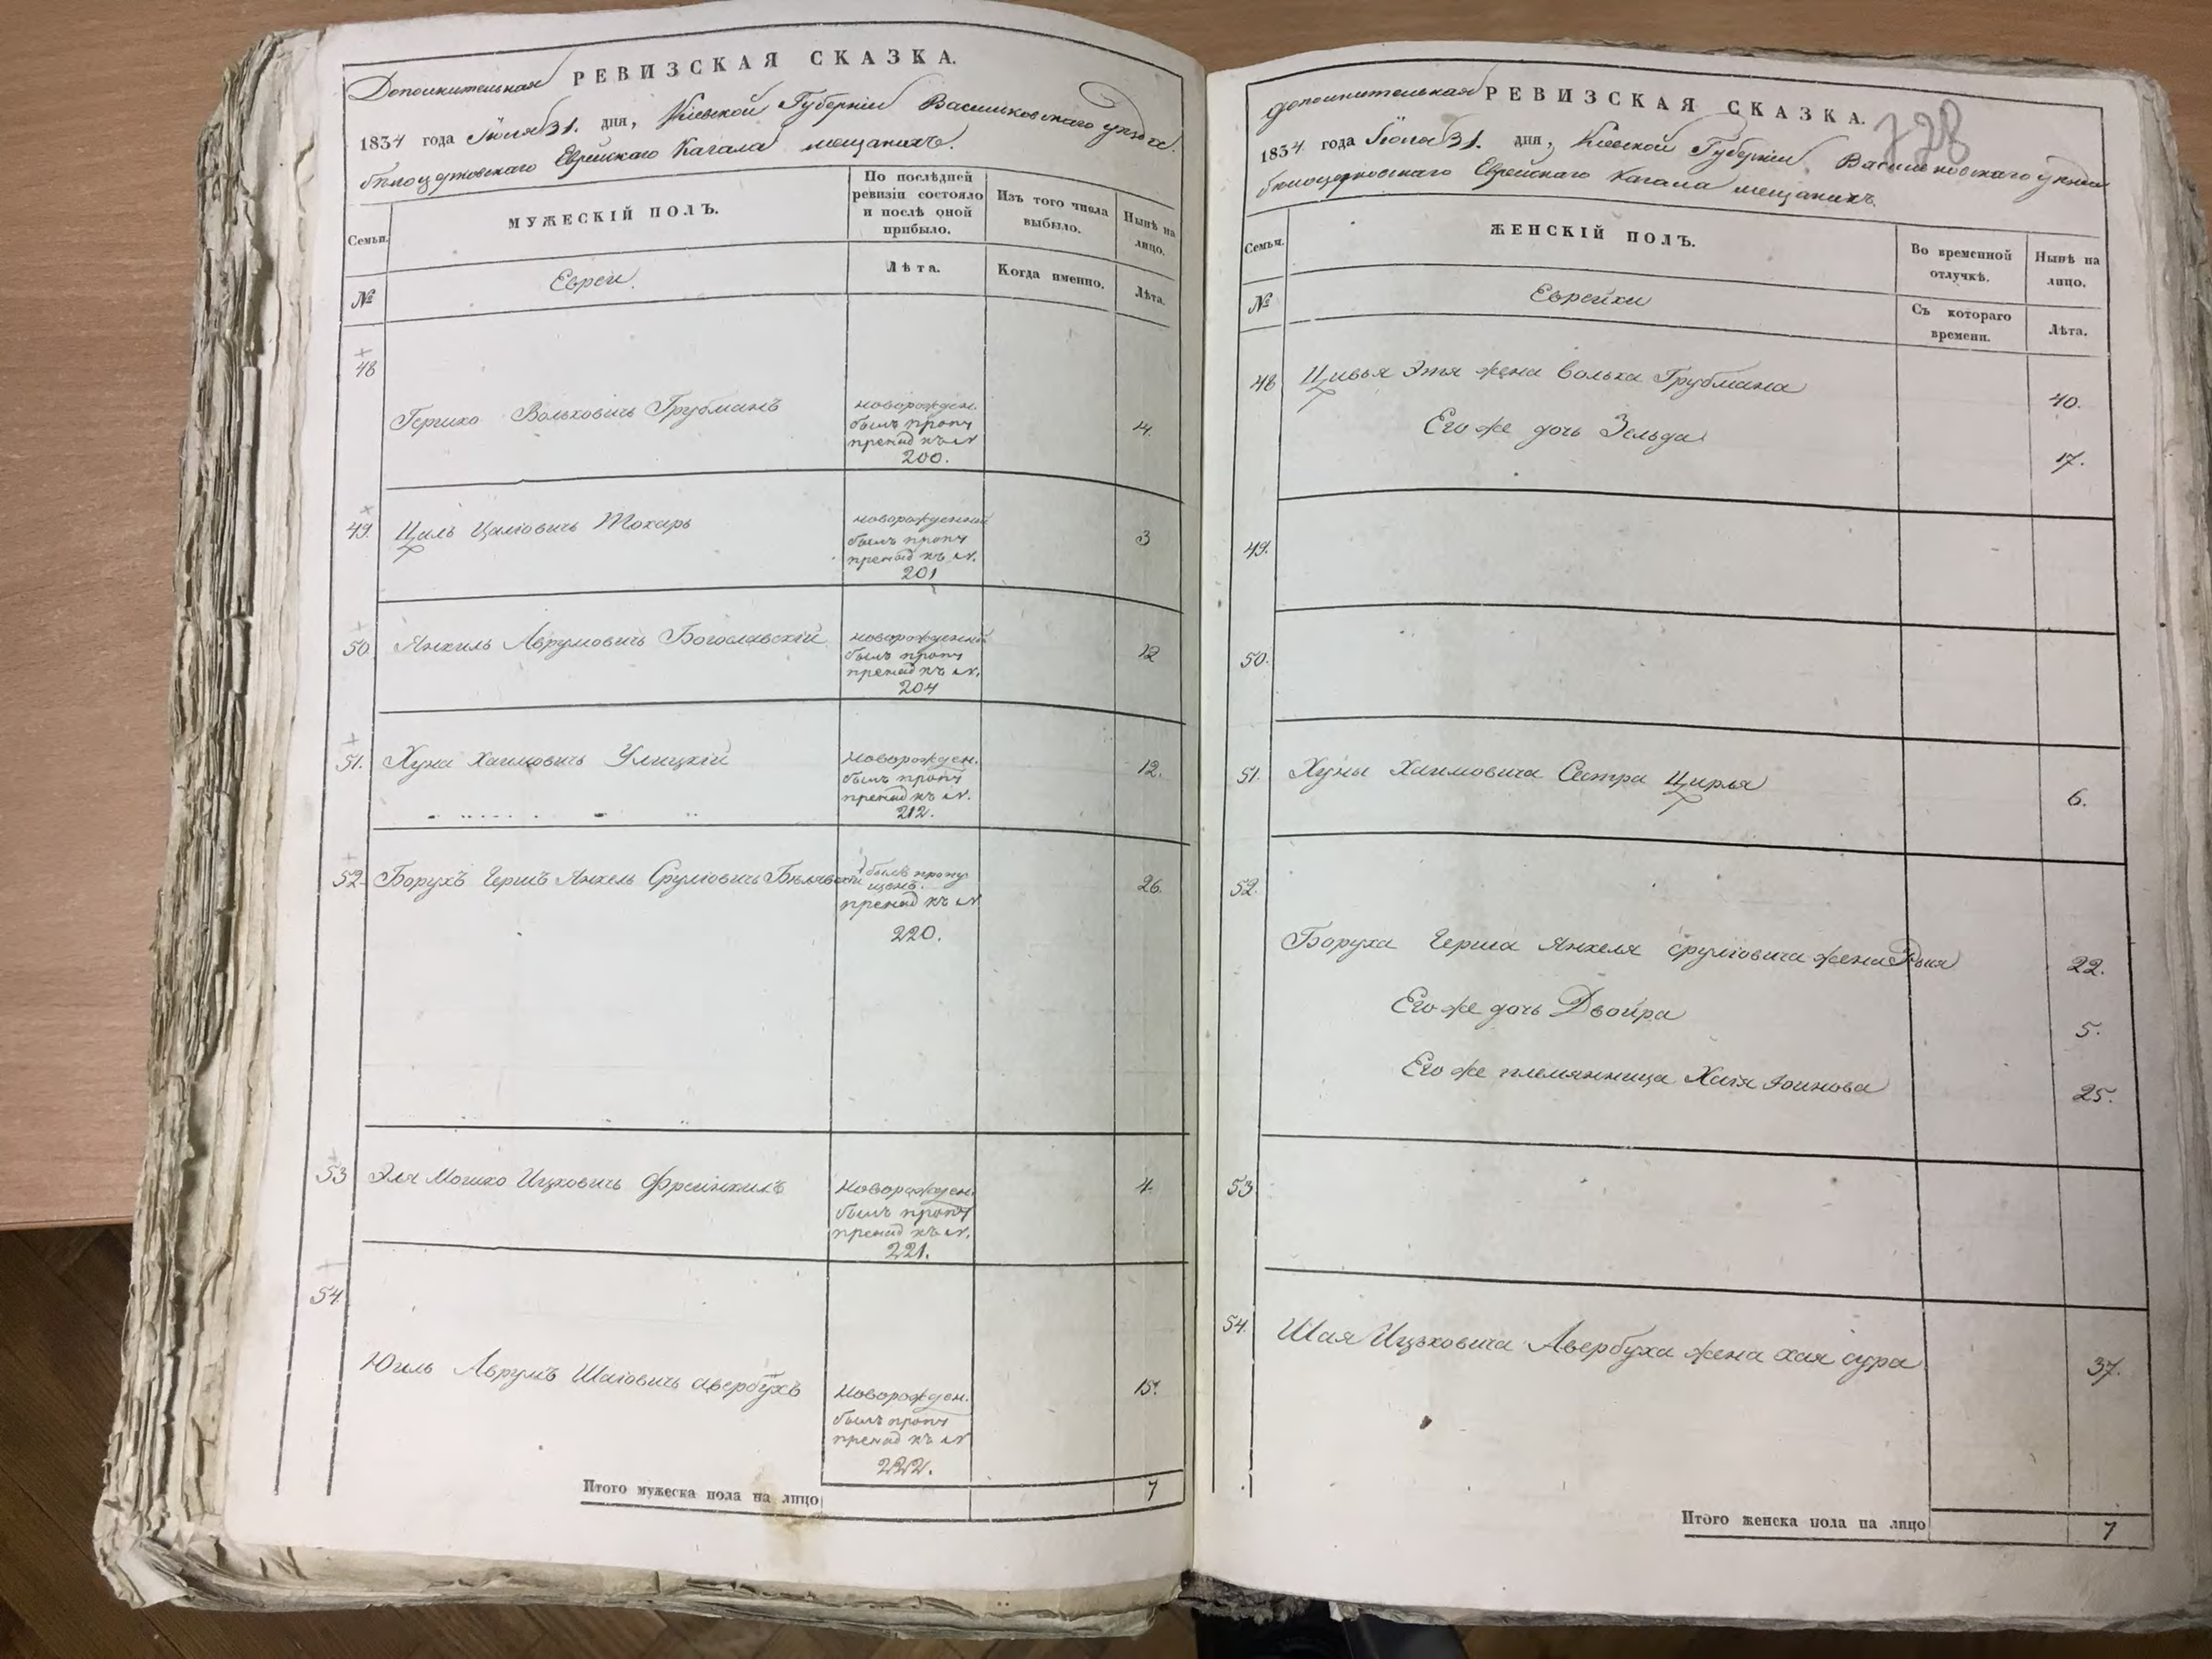 Дополнительная РЕВИЗСКАЯ СКАЗКА.
1834 года Іюля 31. дня, Кіевской Губерніи Васильковскаго уезда
бѣлоцерковскаго Еврейскаго Кагала мещанихъ.
Семьи.
МУЖЕСКІЙ ПОЛЪ.
По послѣдней
ревизіи состояло
и послѣ оной
прибыло.
Изъ того числа
выбыло.
Нынѣ на
лицо.
№
Евреи.
Лѣта.
Когда именно.
Лѣта.
48
Гершко Вольховичъ Грубманъ
новорожден.
былъ проп
пренад къ №
200.
4.
49.
Циль Цалговичъ Токарь
новорожденный
былъ проп
пренад къ №.
201
3
50
Янкиль Аврумовичъ Богославскій
новорожденный
былъ проп
пренад къ №.
204
12
51.
Хуна Хаимовичъ Улицкій
новорожден.
былъ проп
пренад къ №.
212.
12.
52.
Борухъ Гершъ Янкель Сруліовичъ Бѣлявскій
былъ пропу
щенъ.
пренад къ №
220.
26.
53
Эля Мошко Ицковичъ Френкилъ
новорожден.
былъ проп
пренад къ №.
221.
4.
54.
Юиль Аврумъ Шаіовичъ авербухъ
новорожден.
былъ проп
пренад къ №
222.
15.
Итого мужеска пола на лицо
7
дополнительная РЕВИЗСКАЯ СКАЗКА.
728
1834 года Іюля 31. дня, Кіевской Губерніи Васильковскаго уезда
бѣлоцерковскаго Еврейскаго Кагала мещанихъ.
Семьи.
ЖЕНСКІЙ ПОЛЪ.
Во временной
отлучкѣ.
Нынѣ на
лицо.
№
Еврейки
Съ котораго
времени.
Лѣта.
48
Цивья Этя жена Волька Грубмана
40.
Его же дочь Зельда
17.
49.
50.
51.
Хуны Хаимовича Сестра Цирля
6.
52.
Боруха Герша Янкеля Сруліовича жена
22.
Его же дочь Двойра
5.
Его же племянница Хаія
25.
53
54.
Шая Ицьковича Авербуха жена хая сура
37.
Итого женска пола на лицо
7